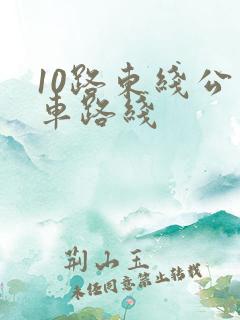 10路东綫公
車路綫
荆山玉
未经同意禁止转载